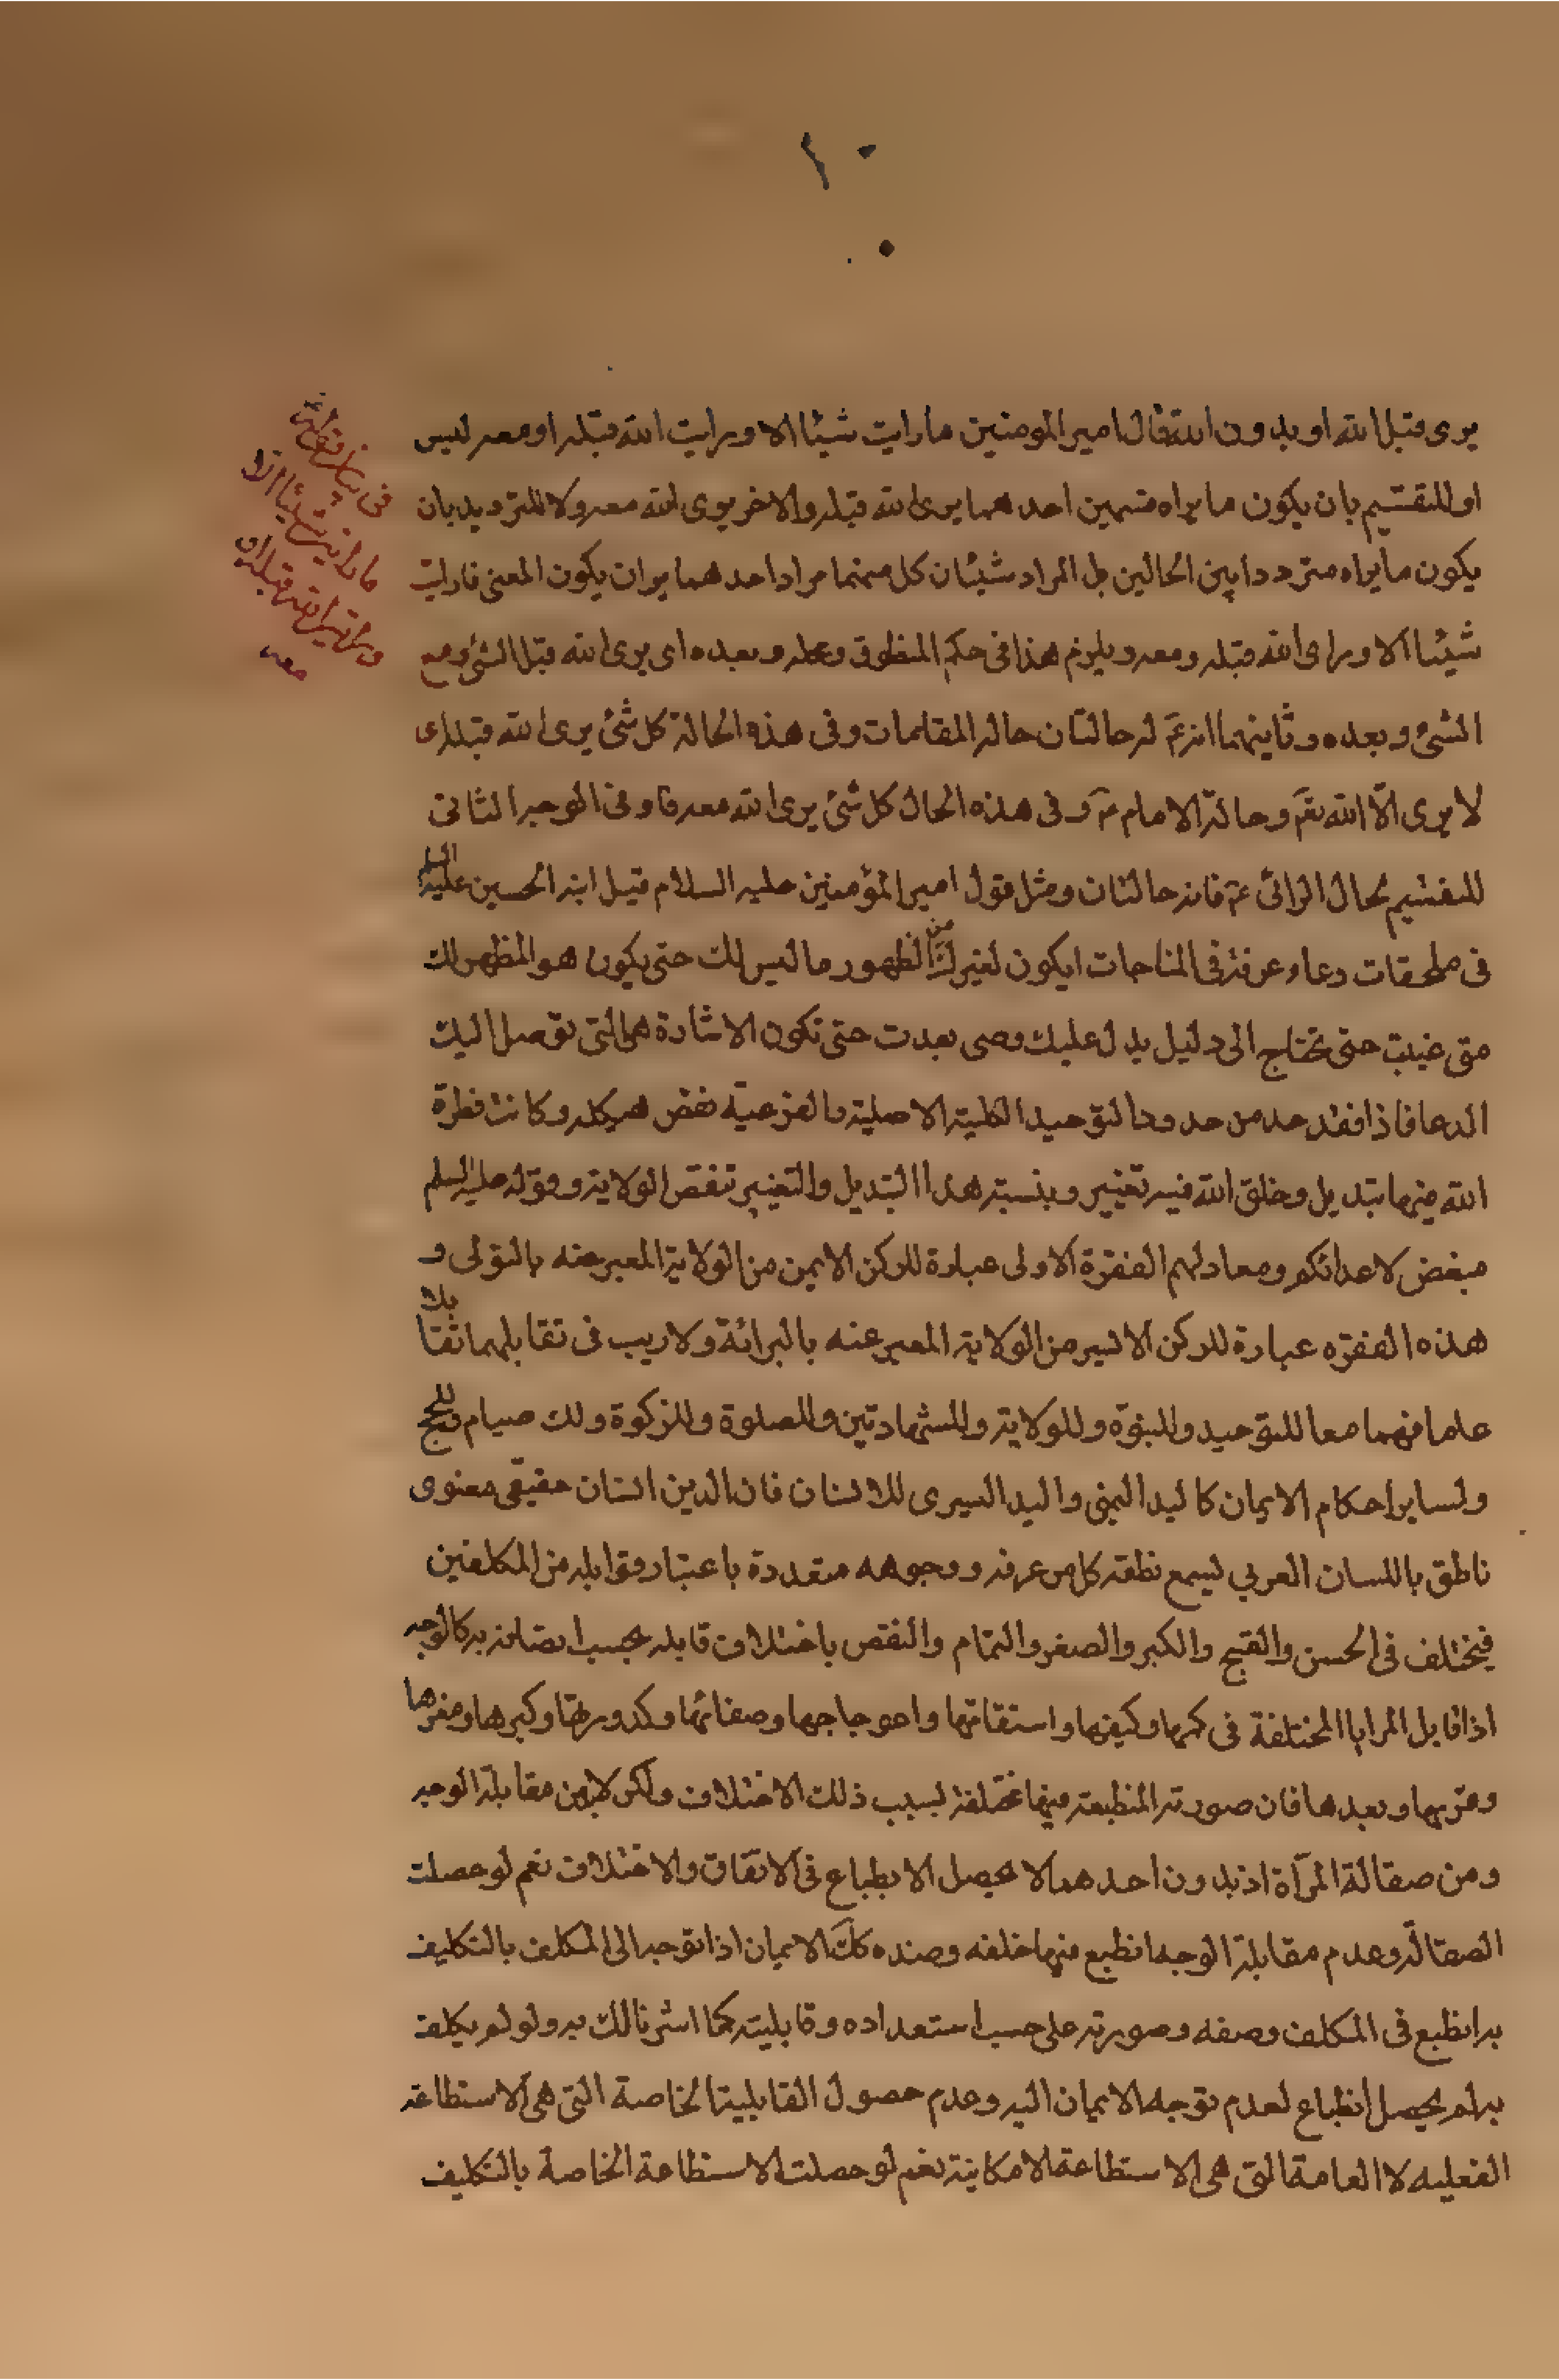 ١٠
يرى قبل الله او بدون الله قال امير المومنين ما رايت شيئا الا ورايت الله قبله او معه ليس
او للتقسيم بان يكون ما يراه قسمين احدهما يرى الله قبله والاخر يرى الله معه ولا للترديد بان
يكون ما يراه مترددا بين الحالين بل المراد شيئان كل منهما مراد احدهما ان يكون المعنى مارايت
شيئا الا وراى الله قبله ومعه ويلزم هذا فى حكم المنطوق وبعده اى يرى الله قبل الشئ ومع
الشئ وبعده وثانيهما انه عم له حالتان حالة المقامات وفى هذه الحالة كل شئ يرى الله قبله اى
لا يرى الّا الله تعم وحالة الامام م وفى هذه الحال كل شئ يرى الله معه فاو فى الوجه الثانى
للتقسيم بحال الرائى عم فانه حالتان ومثل قول امير المؤمنين عليه السلام قيل ابنه الحسين عليه السلم
فى ملحقات دعاء عرفة فى المناجات ايكون لغيرك من الظهور ما ليس لك حتى يكون هو المظهر لك
متى غيبت حتى تحتاج الى دليل يدل عليك ومتى بعدت حتى تكون الاشارة هى التى توصل اليك
الدعا فاذا فقد حد من حدود التوحيد الكلية الاصلية والفرعية نقض هيكله وكانت فطرة
الله فيها تبديل وخلق الله فيه تغيير وبنسبة هذا التبديل والتغيير تنقص الولاية وقوله عليه السلم
مبغض لاعدائكم ومعاد لهم الفقرة الاولى عبارة للركن الايمن من الولاية المعبر عنه بالتولى و
هذه الفقره عبارة للركن الايسر من الولاية المعبر عنه بالبرائة ولا ريب فى تقابلهما تقابلا
عاما فهما معا للتوحيد وللنبوّة وللولاية وللشهادتين وللصلوة وللزكوة ولك صيام وللحج
ولساير احكام الايمان كاليد اليمنى واليد اليسرى للانسان فان الدين انسان حقيقى معنوى
ناطق باللسان العربي يسمع نطقه كل من عرفه ووجوهه متعددة باعتبار قوابله من المكلفين
فيختلف فى الحسن والقبح والكبر والصغر والتمام والنقص باختلاف قابله بحسب اتصافه به كالوجه
اذا قابل المرايا المختلفة فى كمها وكيفها واستقامتها واعوجاجها وصفائها وكدورتها وكبرها وصغرها
وقربها وبعدها فان صورته المنطبعة فيها مختلفة بسبب ذلك الاختلاف ولكن لابد من مقابلة الوجه
ومن صقالة المرآة اذ بدون احدهما لا يحصل الانطباع فى الاتفاق والاختلاف نعم لو حصلت
الصقالة وعدم مقابلة الوجه انطبع فيها خلفه وضده كك الايمان اذا توجه الى المكلف بالتكليف
به انطبع فى المكلف وصفه وصورته على حسب استعداده وقابليته كما اشرنا لك به ولو لم يكلف
به لم يحصل انطباع لعدم توجه الايمان اليه وعدم حصول القابلية الخاصة التى هى الاستطاعة
الفعليه لا العامة التى هى الاستطاعة الامكانية نعم لو حصلت الاستطاعة الخاصة بالتكليف
فى بيان قوله
ما رايت شيئا الا
ورايت الله قبله او
معه